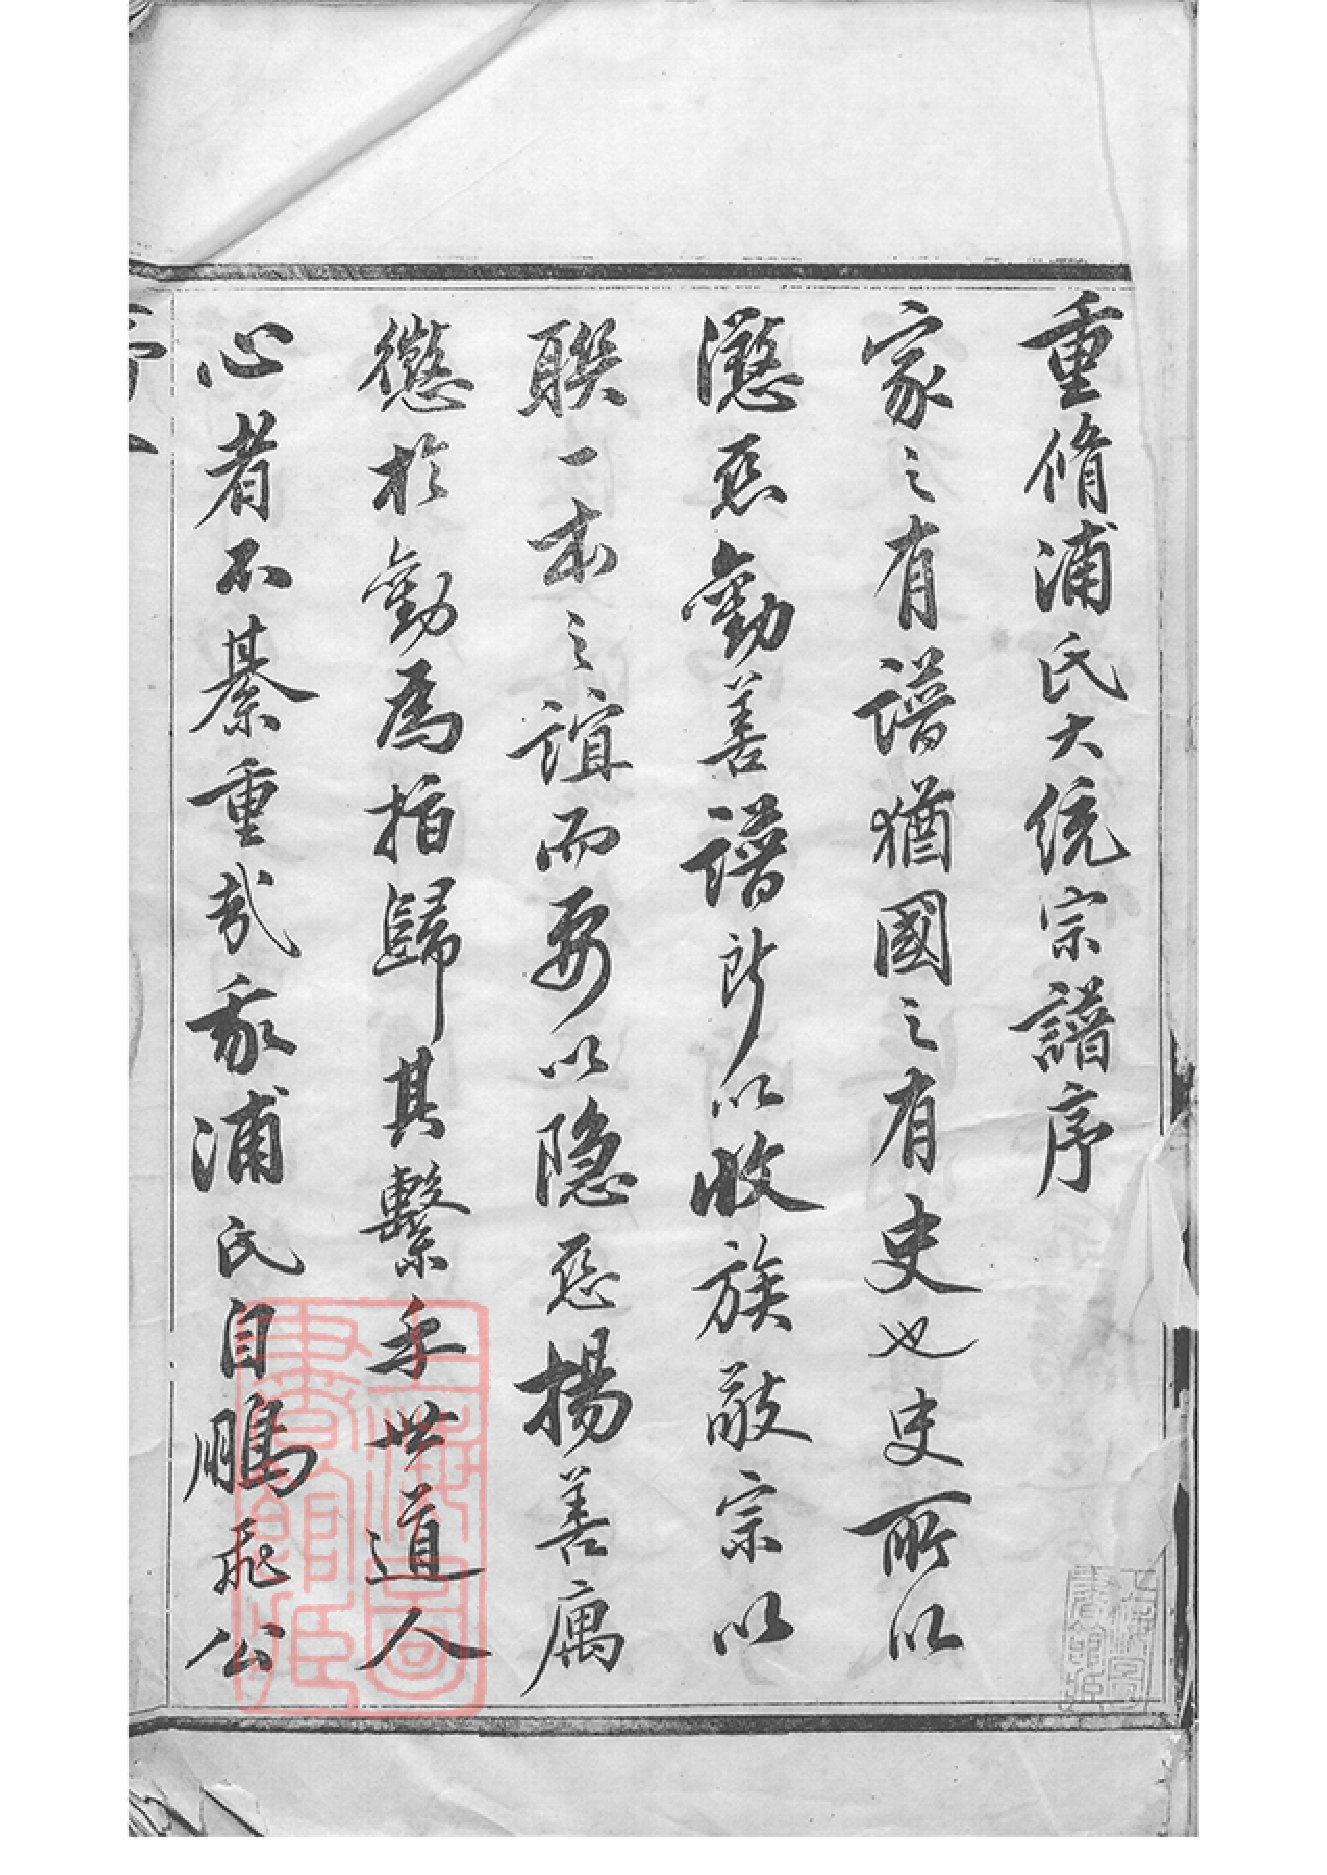 重脩浦氏大統宗譜序
家之有譜猶國之有史也史所以
懲惡勸善譜所以收族敬宗以
聯一本之誼而要以隐惡揚善寓
懲於勸為指歸其繫乎世道人
心者不綦重哉我浦氏自鵬飛公
上海圖書館藏